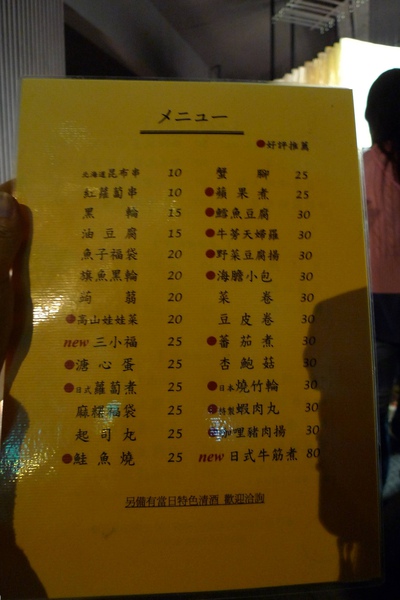 メニュー
●好評推薦
北海道昆布串 10
紅蘿蔔串 10
黑輪 15
油豆腐 15
魚子福袋 20
旗魚黑輪 20
蒟蒻 20
●高山娃娃菜 20
new 三小福 25
●溏心蛋 25
●日式蘿蔔煮 25
麻糬福袋 25
起司丸 25
●鮭魚燒 25
蟹腳 25
●蘋果煮 25
●鱈魚豆腐 30
●牛蒡天婦羅 30
●野菜豆腐揚 30
●海膽小包 30
菜卷 30
豆皮卷 30
●蕃茄煮 30
杏鮑菇 30
●日本燒竹輪 30
●特製蝦肉丸 30
●咖哩豬肉揚 30
new 日式牛筋煮 80
另備有當日特色清酒 歡迎洽詢